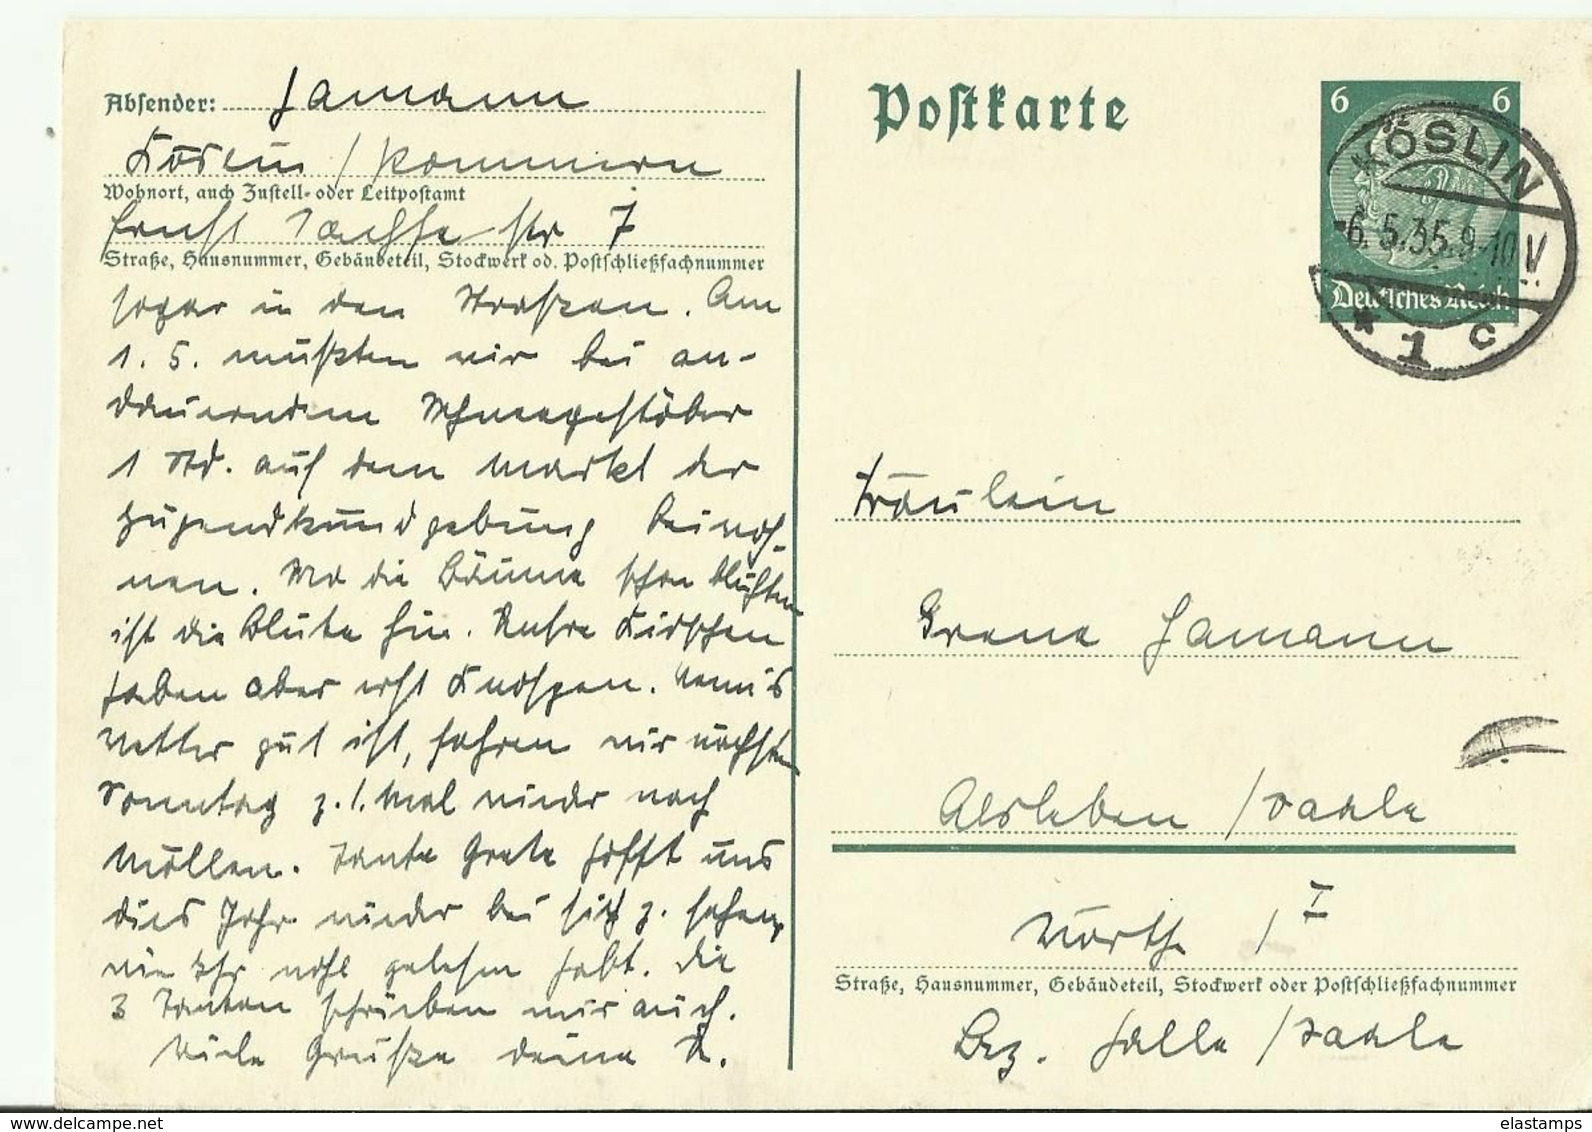 Absender: Hamann
Köslin / Pommern
Wohnort, auch Zustell- oder Leitpostamt
Ernst Sachse str 7
Straße, Hausnummer, Gebäudeteil, Stockwerk od. Postschließfachnummer
sogar in den Strassen. Am
1. 5. mußten wir bei an-
dauerndem Schneegestöber
1 Std. auf dem Markt der
Jugendkundgebung beiwoh-
nen. Wo die Bäume schon blühten
ist die Blüte hin. Unsre Kirschen
haben aber erst Knospen. Wenn's
Wetter gut ist, fahren wir nächsten
Sonntag z. 1. Mal wieder nach
Möllen. Tante Grete hofft uns
dies Jahr wieder bei sich z. sehen,
wie Ihr wohl gelesen habt. Die
3 Tanten schrieben mir auch.
Viele Grüße deine K.
Postkarte
6 6
Deutsches Reich
KÖSLIN
-6.5.35.9-10 V
* 1 c
Fräulein
Hamann
Alsleben / Saale
I
Straße, Hausnummer, Gebäudeteil, Stockwerk oder Postschließfachnummer
Bez. Halle / Saale
elastamps